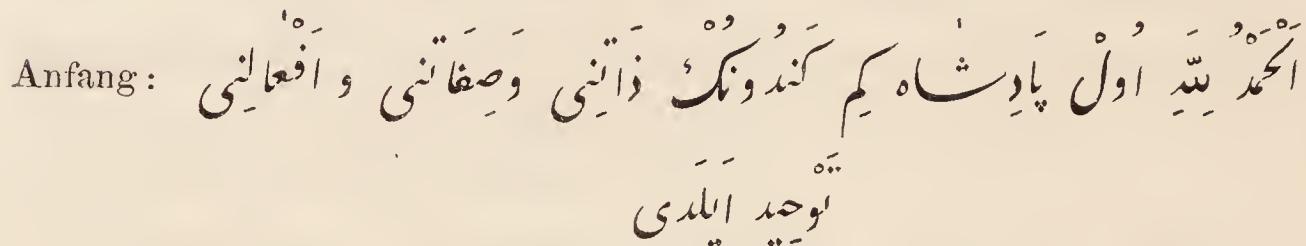 Anfang: اَلْحَمْدُ لِلّٰهِ اُولْ پَادِشَاه كِم كَنْدُونُكْ ذَاتِنِی وَصِفَاتنی و اَفْعَالِنِی
تَوْحِيد اَیلَدی